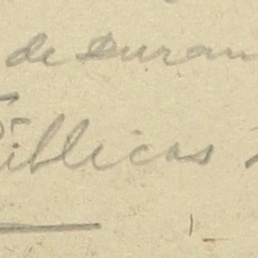 de Duran
úblicas